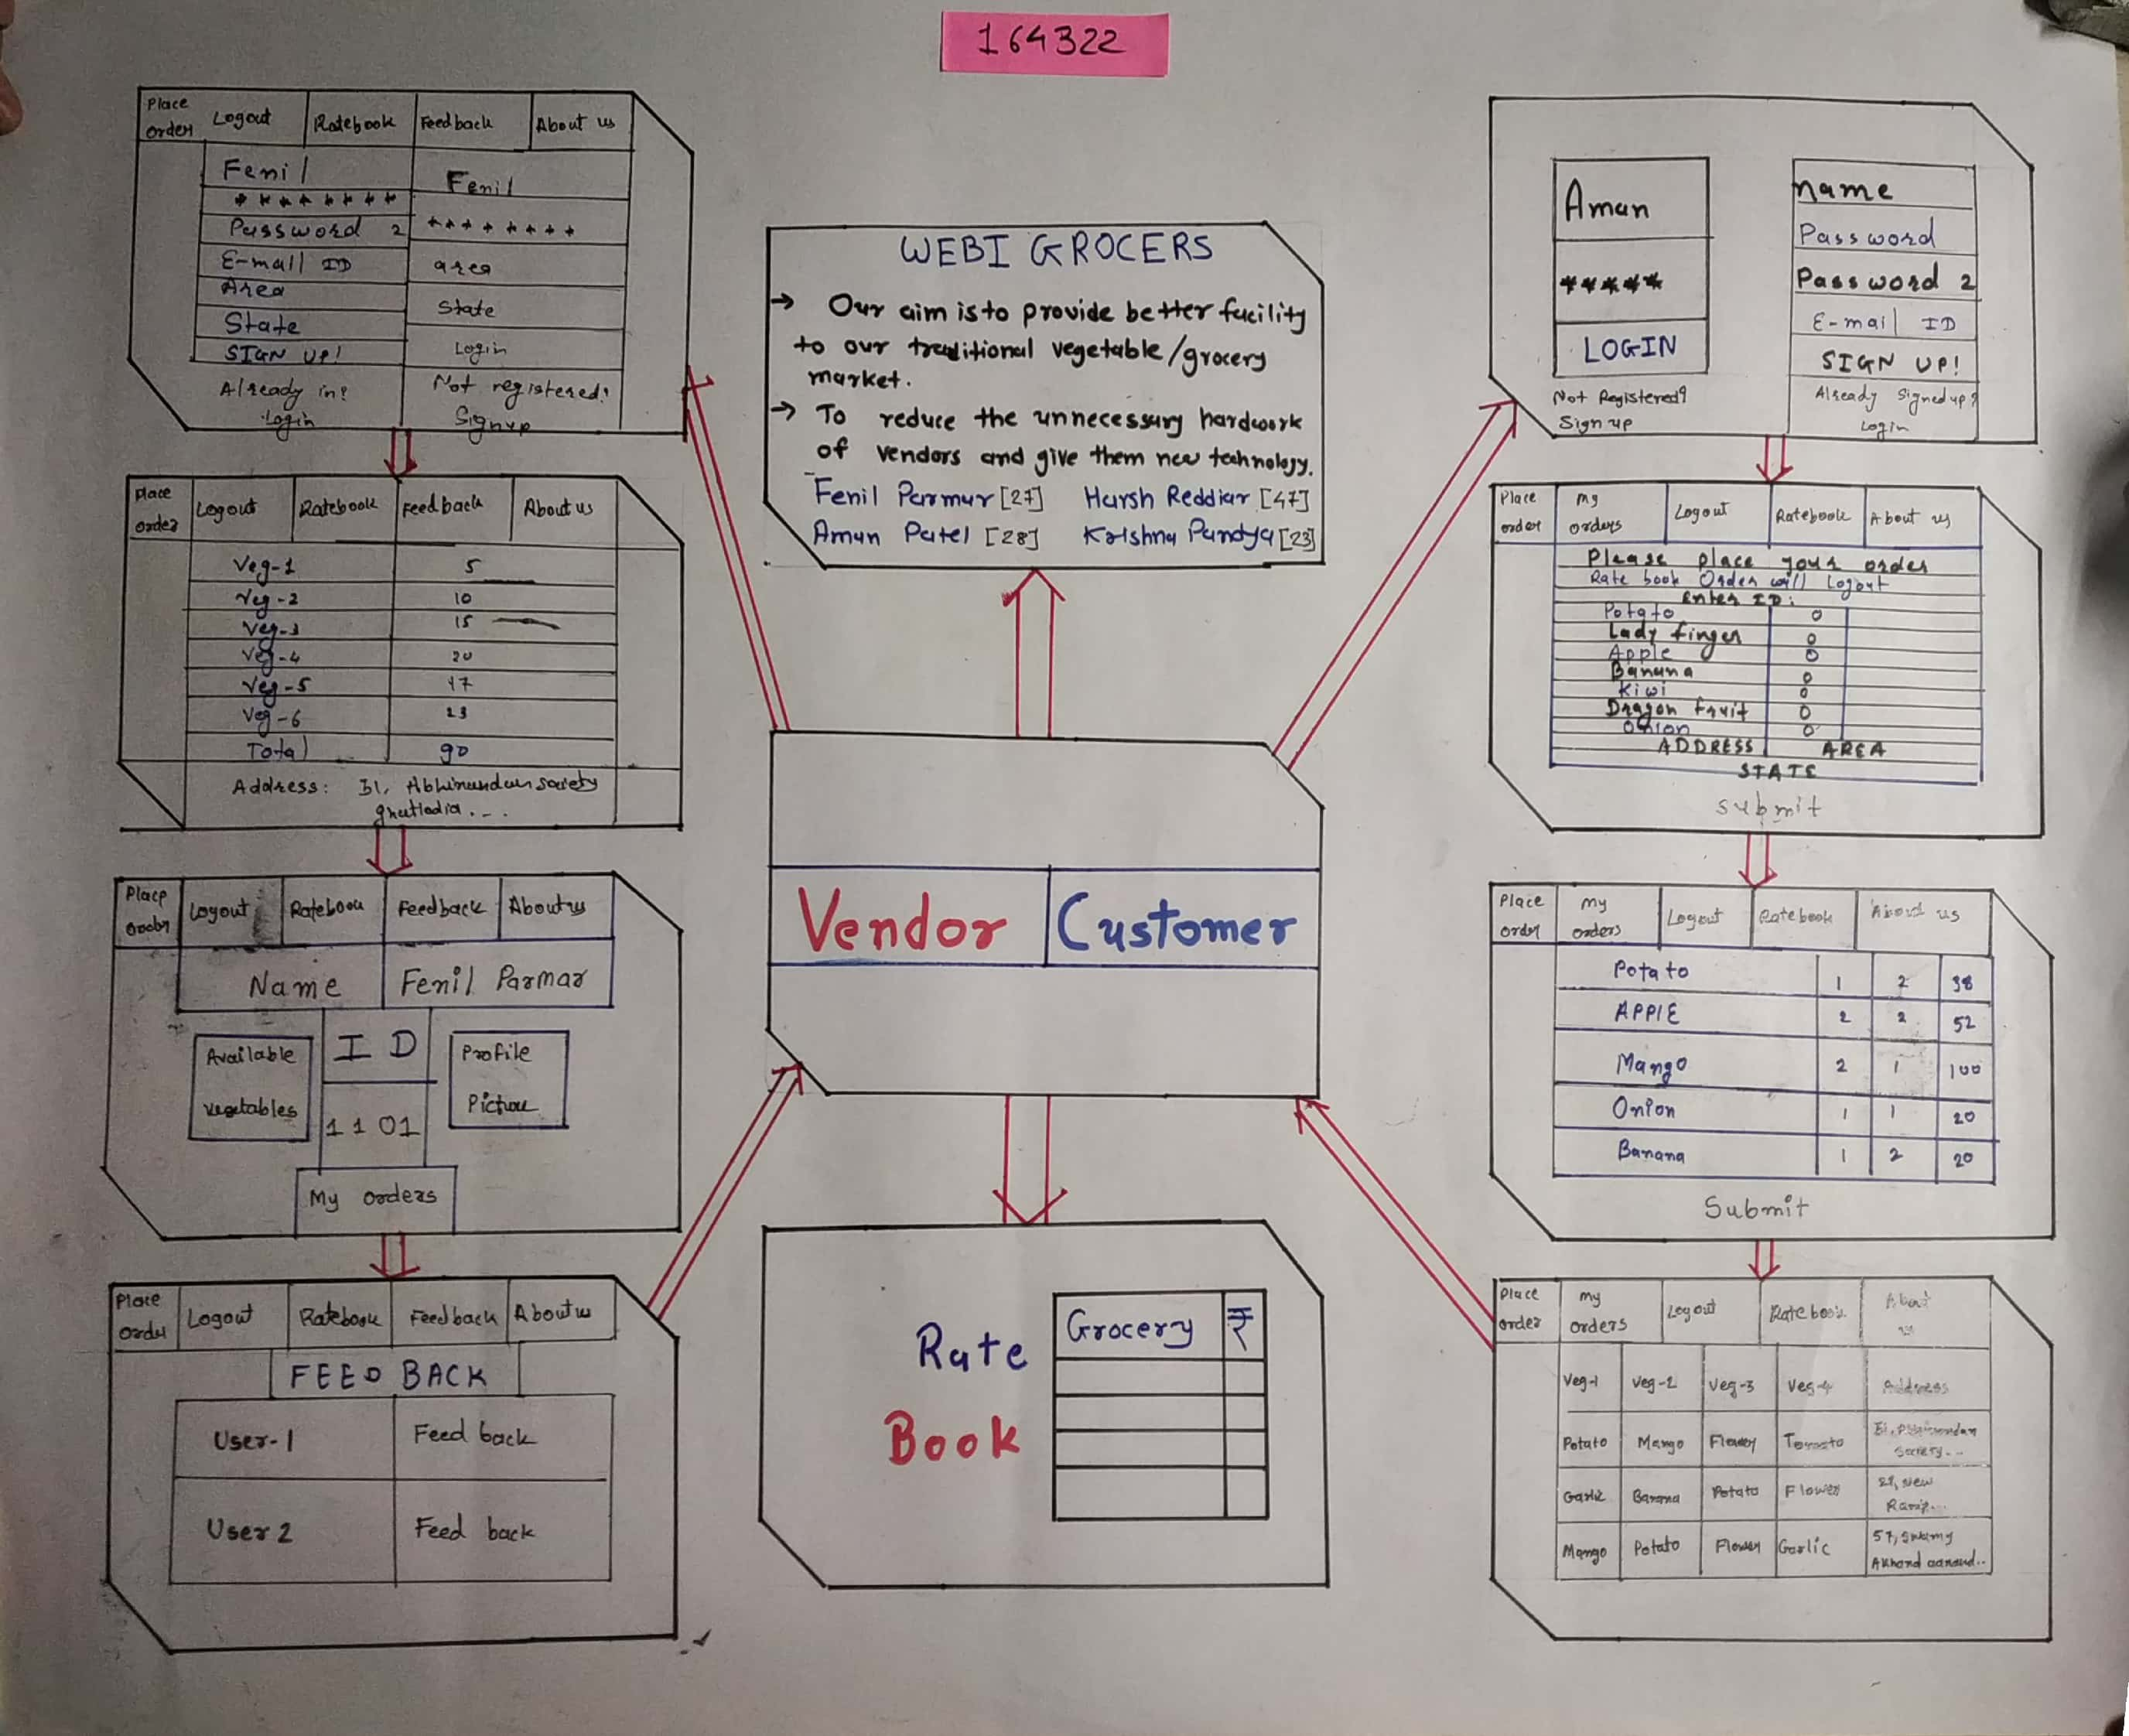 164322
Place order Logout Ratebook Feedback About us
Fenil Fenil
******** ********
Password 2
E-mail ID area
Area
State State
SIGN UP! Login
Already in? Not registered!
Login Signup
Place order Logout Ratebook Feedback About us
Veg-1 5
Veg-2 10
Veg-3 15
Veg-4 20
Veg-5 17
Veg-6 23
Total 90
Address: Society
Place Logout Feedback About us
Name Fenil Parmar
Available vegetables
ID
1101
Profile
My orders
Place order Logout Ratebook Feedback About us
FEEDBACK
User-1 Feed back
User 2 Feed back
WEBI GROCERS
→ Our aim is to provide better facility
to our traditional vegetable/grocery
market.
→ To reduce the unnecessary hardwork
of vendors and give them new technology.
Fenil Parmar [27] Harsh Reddiar [47]
Aman Patel [28] Krishna Pandya [23]
Vendor Customer
Rate
Book
Grocery ₹
Aman
*****
LOGIN
Not Registered?
Sign up
name
Password
Password 2
E-mail ID
SIGN UP!
Already Signed up?
Login
Place order my orders Logout Ratebook About us
Please place your order
Rate book Order will Logout
Enter ID:
Potato 0
Lady finger 0
Apple 0
Banana 0
Kiwi 0
Dragon fruit 0
Onion 0
ADDRESS AREA
STATE
submit
Place order my orders Logout Ratebook About us
Potato 1 2 38
APPLE 2 2 52
Mango 2 1 100
Onion 1 1 20
Banana 1 2 20
Submit
Place order my orders Logout Ratebook About us
Veg-1 Veg-2 Veg-3 Veg-4 Address
Potato Mango Flower Tomato
Garlic Banana Potato Flower New
Mango Potato Flower Garlic 57, Swamy